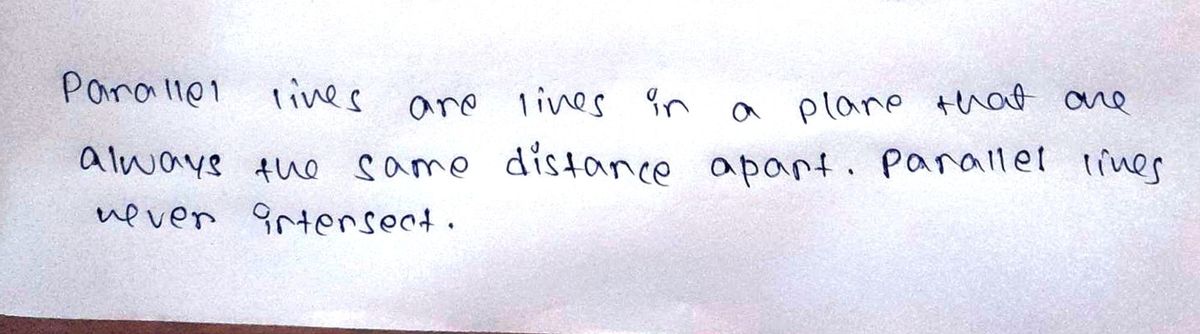 Parallel lines are lines in a plane that are
always the same distance apart. Parallel lines
never intersect.